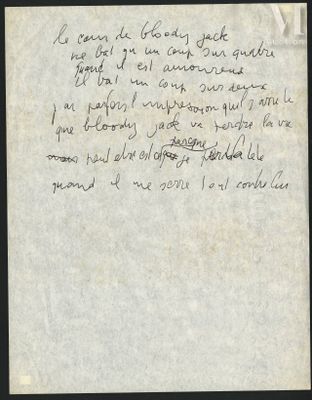 le cœur de bloody jack
ne bat qu'un coup sur quatre
quand il est amoureux
il bat un coup sur deux
j'ai parfois l'impression qu'il s'arrête
que bloody jack va perdre la vie
mais peut être est ce parceque je perds la tête
quand il me serre tout contre lui